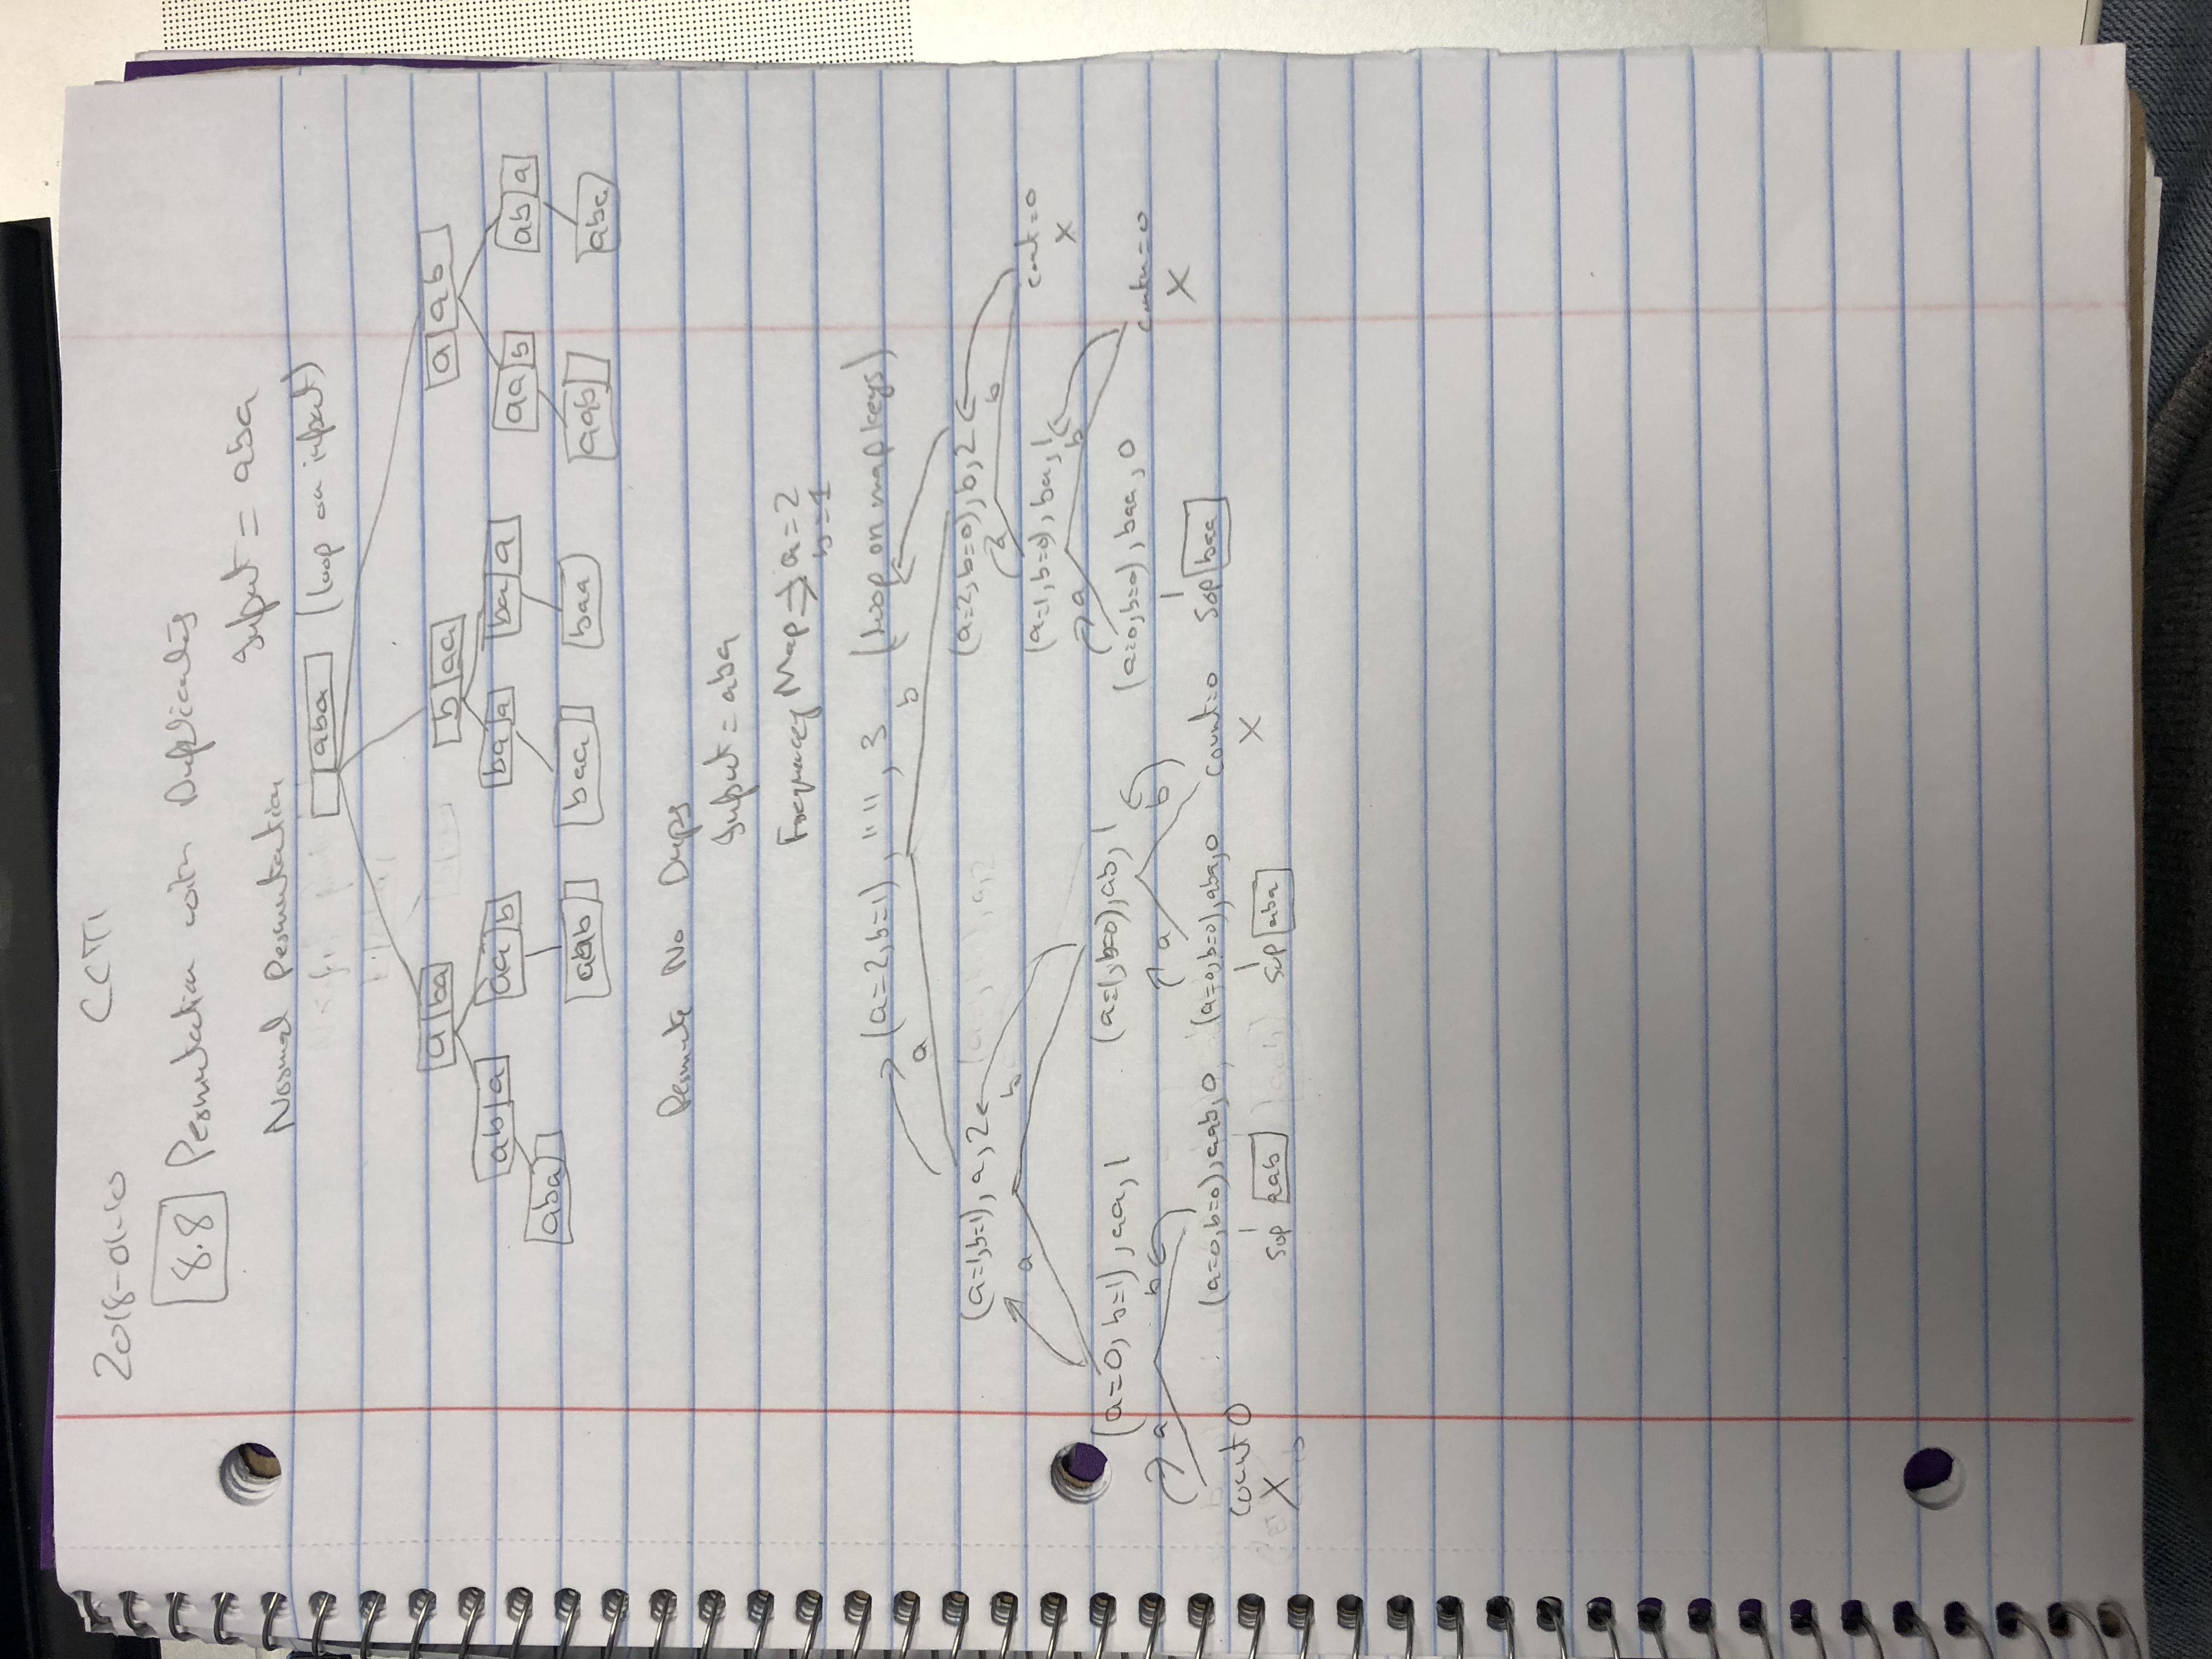 2018-01-10 CCTI
8.8 Permutation with Duplicates
Input = aba
Normal Permutation
aba (loop on input)
a ba b aa a ab
ab a aa b ba a ba a aa b ab a
aba aab baa baa aab aba
Permute No Dups
Input = aba
Frequency Map => a=2
b=1
(a=2,b=1), " ", 3 (loop on map keys)
a b
(a=1,b=1), a, 2 (a=2,b=0), b, 2
a b a b
(a=1,b=0), ba, 1 count=0
X
a b
(a=0, b=1), aa, 1 (a=1,b=0), ab, 1 (a=0,b=0), baa, 0 count=0
X
a b a b
count 0 (a=0,b=0), aab, 0 (a=0,b=0), aba, 0 count=0 Sop baa
X Sop aab Sop aba X